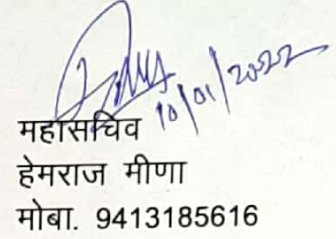 10/01/2022
महासचिव
हेमराज मीणा
मोबा. 9413185616